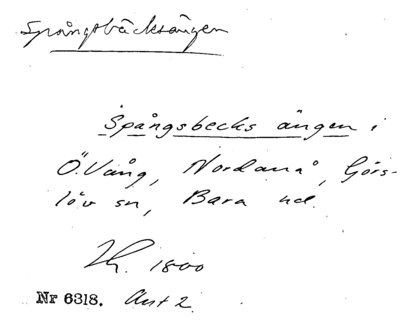 Spångsbäcksängen
Spångsbecks ängen i
Ö. Vång, Nordanå, Görs-
löv sn, Bara hd.
1800
Nr 6318. Ant 2